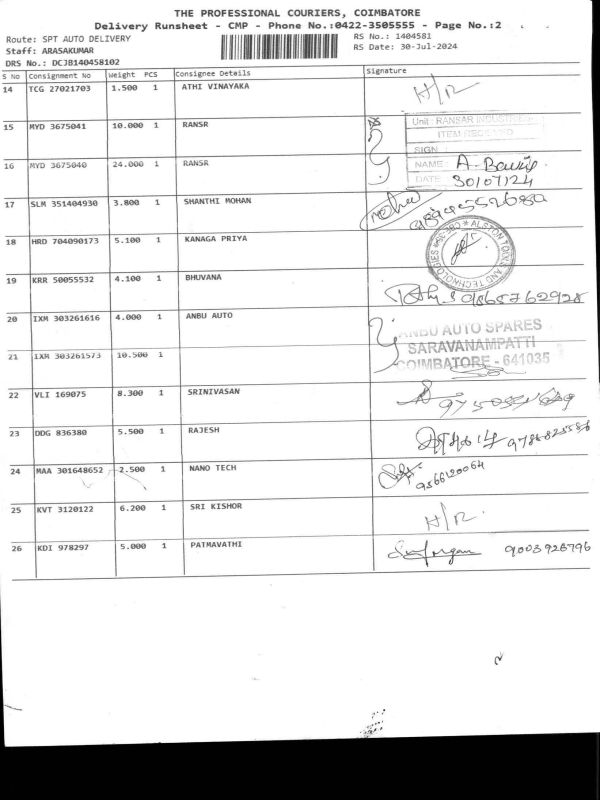 THE PROFESSIONAL COURIERS, COIMBATORE
Delivery Runsheet - CMP - Phone No.:0422-3505555 - Page No.:2
Route: SPT AUTO DELIVERY RS No.: 1404581
Staff: ARASAKUMAR RS Date: 30-Jul-2024
DRS No.: DCJB140458102
S No Consignment No Weight PCS Consignee Details Signature
14 TCG 27021703 1.500 1 ATHI VINAYAKA H/R
15 MYD 3675041 10.000 1 RANSR
Unit: RANSAR INDUSTRIES
ITEM RECEIVED
SIGN
16 MYD 3675040 24.000 1 RANSR
NAME: A.
DATE 30/07/24
17 SLM 351404930 3.800 1 SHANTHI MOHAN
18 HRD 704090173 5.100 1 KANAGA PRIYA
19 KRR 50055532 4.100 1 BHUVANA
20 IXM 303261616 4.000 1 ANBU AUTO
ANBU AUTO SPARES
SARAVANAMPATTI
COIMBATORE - 641035
21 IXM 303261573 10.500 1
22 VLI 169075 8.300 1 SRINIVASAN
23 DDG 836380 5.500 1 RAJESH
24 MAA 301648652 2.500 1 NANO TECH
9566120064
25 KVT 3120122 6.200 1 SRI KISHOR H/R.
26 KDI 978297 5.000 1 PATMAVATHI 9003928796